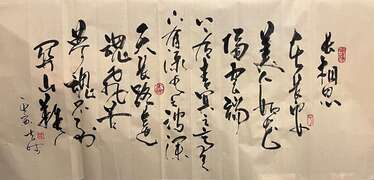 长相思
在长安
美人如花
隔云端
上有青冥之高天
下有渌水之波澜
天长路远
魂飞苦
梦魂不到
关山难